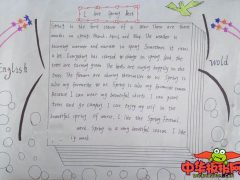 I love Spring best
English
Wold
is the first season of a year. There are three
months in spring: March, April, and May. The weather is
becoming warmer and warmer in spring. Sometimes it rains
a lot. Everywhere has started to change in spring. And the
trees are turning green. The birds are singing happily in the
trees. The flowers are almost everywhere to be. Spring is
also my favourite Spring is also my favourite season
because I can wear my beautiful skirt. I can plant
trees and go camping. I can enjoy my self in the
beautiful spring of warm. I like the Spring Festival
Spring is a very beautiful season. I like
it much.